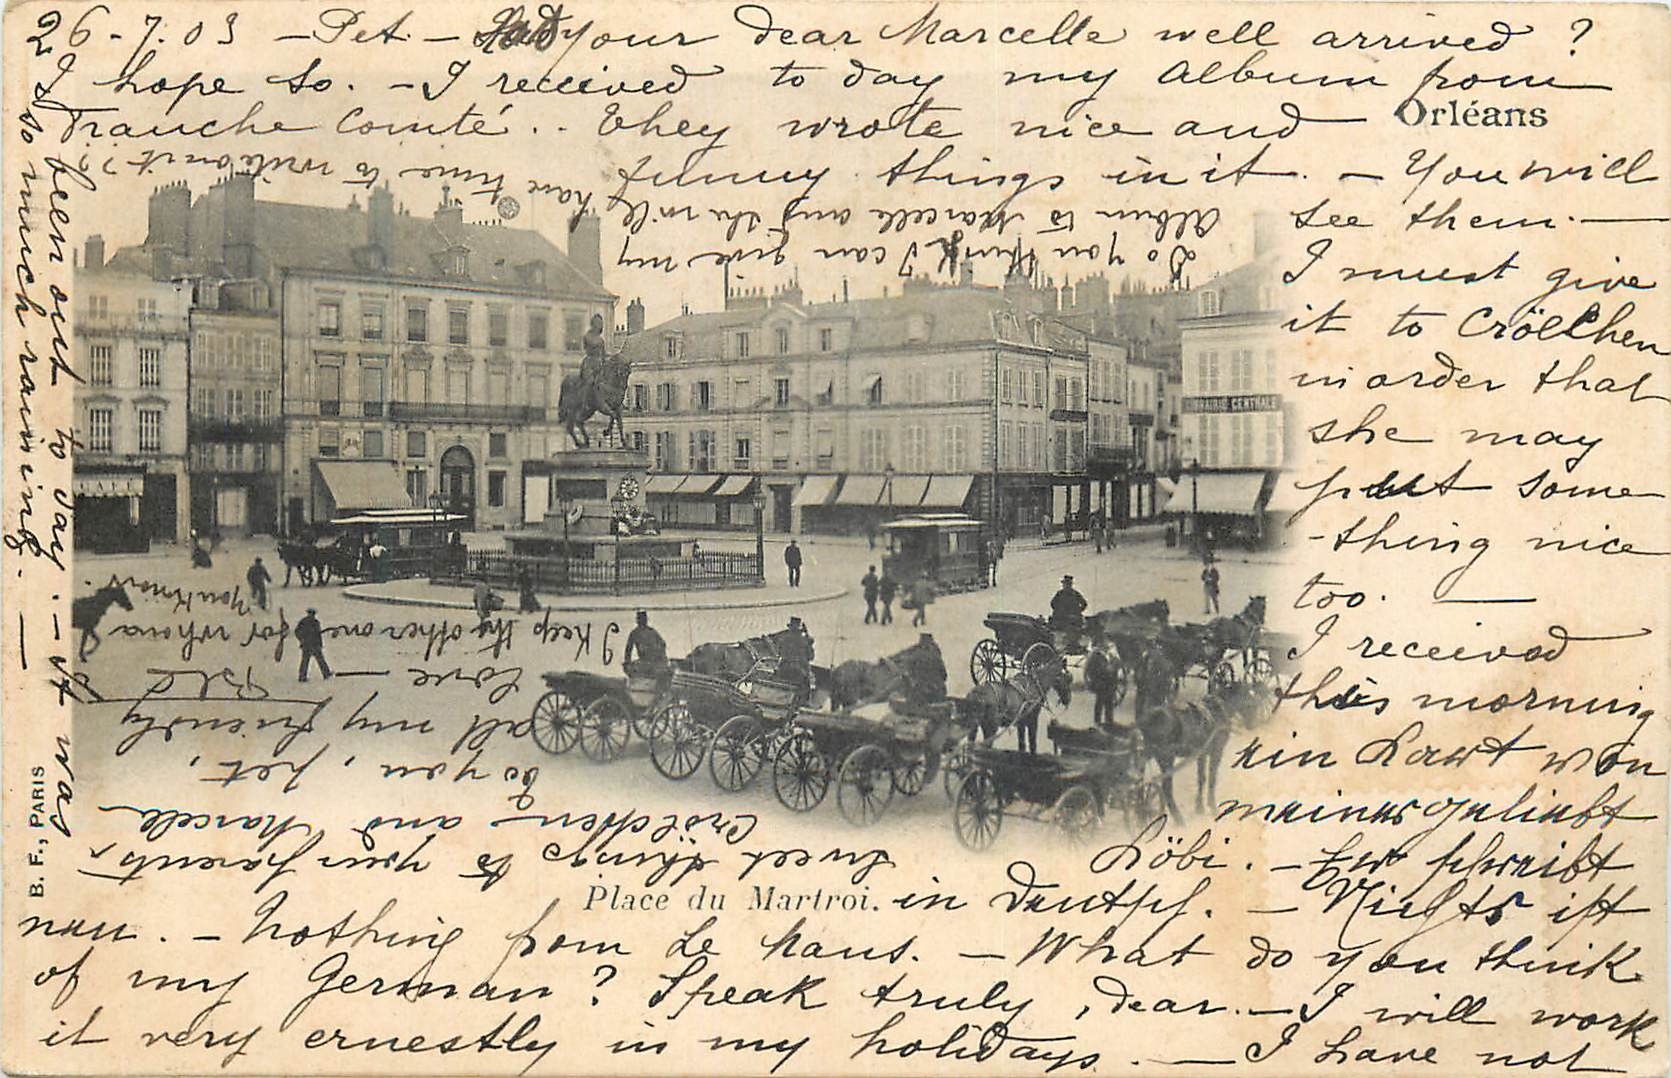 26-7.03 - Pet. - Had your dear Marcelle well arrived?
I hope so. - I received to day my album from
Franche Comté.. They wrote nice and
Orléans
funny things in it. - You will
see them. -
I must give
it to Cröllhen
in order that
she may
put some
-thing nice
too. -
I received
this morning
ein Kart von
meiner geliebt
Löbi. - Er schreibt
in Deutsch. - Nichts ist
neu. - Nothing from Le Mans. - What do you think
of my German? Speak truly, dear. - I will work
it very ernestly in my holidays. - I have not
been out to day. - it was
so much raining. -
Do you think I can give my
Album to Marcelle and she will have time to write on it??
I keep the other one for whom
you know.
Sweet things to your parents
Crölchen and Marcelle
to you, pet,
all my friendly
love -
LIBRAIRIE CENTRALE
CAFÉ
Place du Martroi.
B. F., PARIS